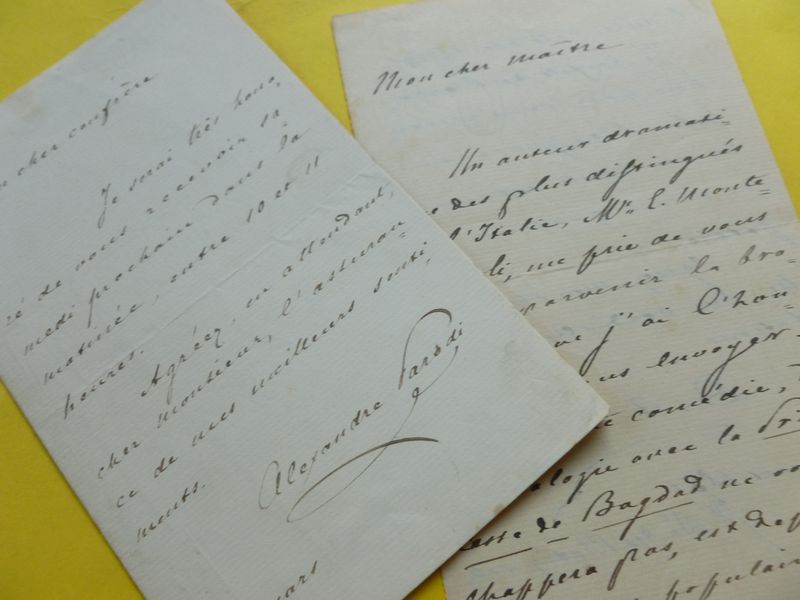 cher confrère
Je serai très hono-
ré de vous recevoir sa-
medi prochain dans la
matinée, entre 10 et 11
heures.
Agréez, en attendant,
cher monsieur, l'assuran-
ce de mes meilleurs senti-
ments.
Alexandre Parodi
mars
Mon cher maître
Un auteur dramati-
e des plus distingués
l'Italie, Mr. L. Monte-
li, me prie de vous
parvenir la bro-
j'ai l'hon-
us envoyer.
comédie,
alogie avec la Prin
esse de Bagdad ne vo
chappera pas, est de
populair